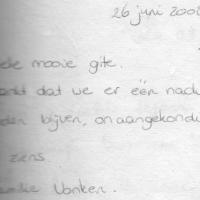 26 juni 200
mooie gite.
dat we er één nach
blijven, onaangekond
ziens.
Vonken.